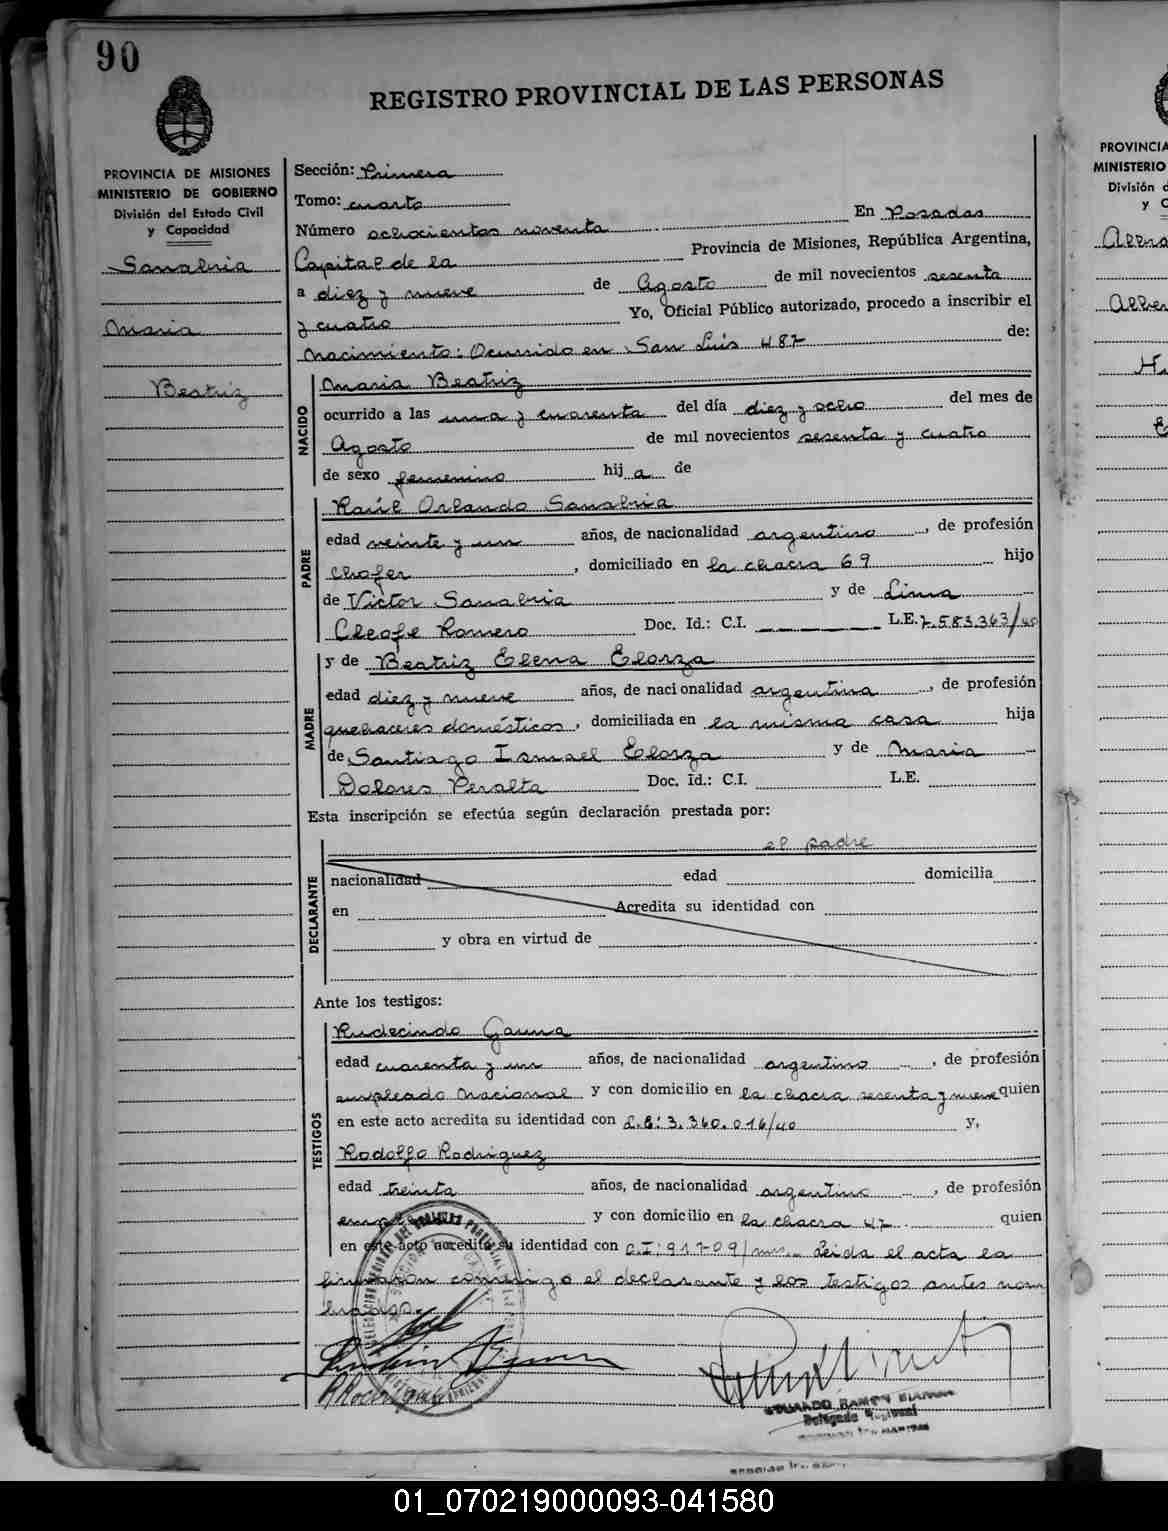 90
REGISTRO PROVINCIAL DE LAS PERSONAS
PROVINCIA DE MISIONES
MINISTERIO DE GOBIERNO
División del Estado Civil
y Capacidad
Sanabria
Maria
Beatriz
Sección: Primera
Tomo: cuarto
Número ochocientos noventa En Posadas
Capital de la Provincia de Misiones, República Argentina,
a diez y nueve de Agosto de mil novecientos sesenta
y cuatro Yo, Oficial Público autorizado, procedo a inscribir el
Nacimiento: Ocurrido en San Luis 487 de:
NACIDO
Maria Beatriz
ocurrido a las una y cuarenta del día diez y ocho del mes de
Agosto de mil novecientos sesenta y cuatro
de sexo femenino hij a de
PADRE
Raúl Orlando Sanabria
edad veinte y un años, de nacionalidad argentino, de profesión
chofer, domiciliado en la chacra 69 hijo
de Victor Sanabria y de Lina
Cleofe Romero Doc. Id.: C.I. L.E. 7.583.363/40
MADRE
y de Beatriz Elena Elorza
edad diez y nueve años, de nacionalidad argentina, de profesión
quehaceres domésticos, domiciliada en la misma casa hija
de Santiago Ismael Elorza y de Maria
Dolores Peralta Doc. Id.: C.I. L.E.
Esta inscripción se efectúa según declaración prestada por:
el padre
DECLARANTE
nacionalidad edad domicilia
en Acredita su identidad con
y obra en virtud de
Ante los testigos:
TESTIGOS
Rudecindo Gauna
edad cuarenta y un años, de nacionalidad argentino, de profesión
empleado Nacional y con domicilio en la chacra sesenta y nueve quien
en este acto acredita su identidad con L.E: 3.360.016/40 y,
Rodolfo Rodriguez
edad treinta años, de nacionalidad argentino, de profesión
y con domicilio en la chacra 47 quien
en este acto acredita su identidad con C.I: 917-09/ Leida el acta la
firmaron conmigo el declarante y los testigos antes nom
brados.
EDUARDO RAMON
Delegado Regional
PROVINCIA
MINISTERIO
División d
y C
01_070219000093-041580